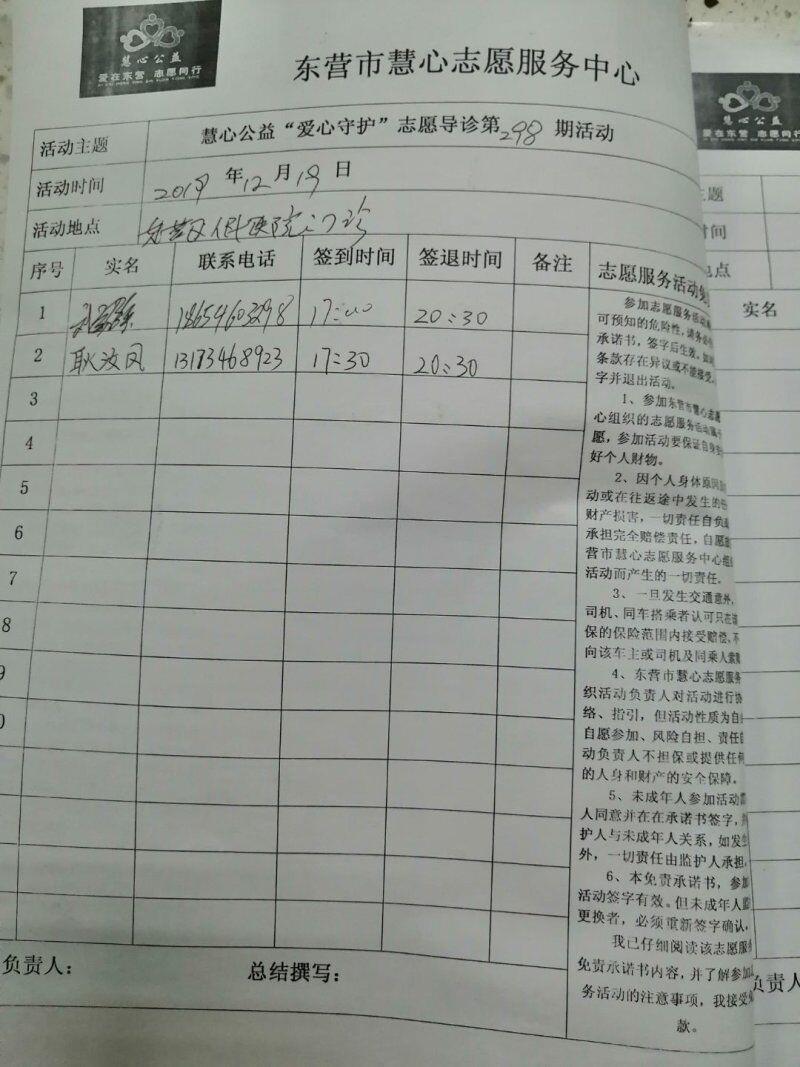 慧心公益
爱在东营 志愿同行
东营市慧心志愿服务中心
慧心公益
爱在东营 志愿同行
活动主题 慧心公益“爱心守护”志愿导诊第298期活动
活动时间 2019年12月19日
活动地点 医院门诊
序号 实名 联系电话 签到时间 签退时间 备注 志愿服务活动免
1 20:30
2 耿波凤 13173468923 17:30 20:30
3
4
5
6
7
8
9
0
参加志愿服务活动
可预知的危险性,请务必
承诺书,签字后生效。如对
条款存在异议或不能接受,
字并退出活动。
1、参加东营市慧心志愿
心组织的志愿服务活动属于
愿,参加活动要保证自身安
好个人财物。
2、因个人身体原因
动或在往返途中发生的
财产损害,一切责任自负
承担完全赔偿责任,自愿
营市慧心志愿服务中心组
活动而产生的一切责任。
3、一旦发生交通意外,
司机、同车搭乘者认可只在
保的保险范围内接受赔偿,不
向该车主或司机及同乘人索
4、东营市慧心志愿服务
织活动负责人对活动进行协
络、指引,但活动性质为自
自愿参加、风险自担、责任自
动负责人不担保或提供任何
的人身和财产的安全保障。
5、未成年人参加活动需
人同意并在在承诺书签字,并
护人与未成年人关系,如发生
外,一切责任由监护人承担。
6、本免责承诺书,参加
活动签字有效。但未成年人监
更换者,必须重新签字确认。
我已仔细阅读该志愿服务
免责承诺书内容,并了解参加
务活动的注意事项,我接受
款。
负责人: 总结撰写:
主题
时间
地点
实名
负责人